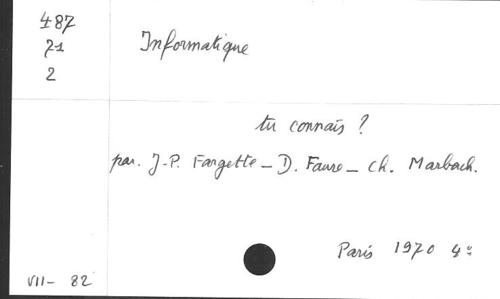 487
71
2
Informatique
tu connais ?
par. J-P. Fargette - D. Faure - Ch. Marbach.
Paris 1970 4º
VII- 82